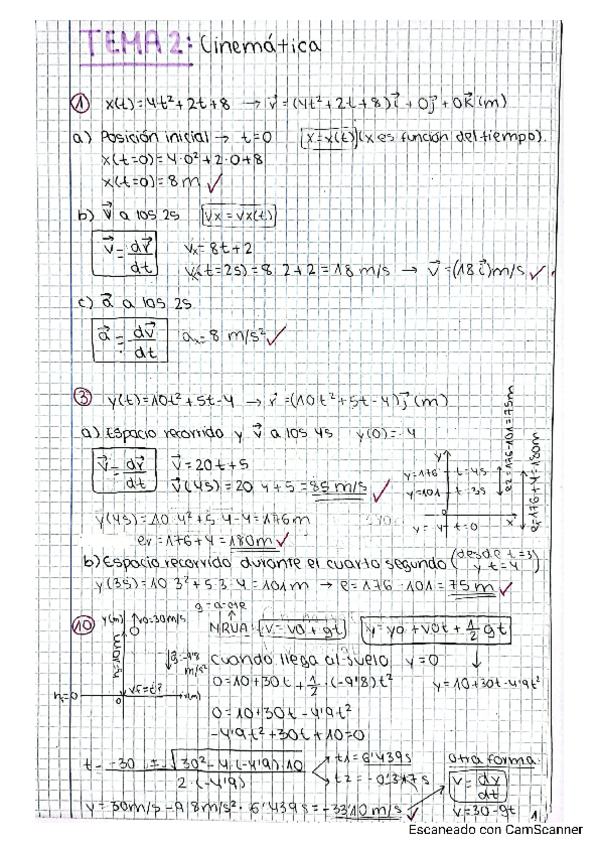 TEMA 2: Cinemática
① x(t)=4t²+2t+8 → v⃗=(4t²+2t+8)i⃗+0j⃗+0k⃗(m)
a) Posición inicial → t=0 x=x(t) (x es función del tiempo).
x(t=0)=4·0²+2·0+8
x(t=0)=8m ✓
b) v⃗ a los 2s Vx=Vx(t)
v⃗=dr⃗/dt Vx=8t+2
Vx(t=2s)=8·2+2=18 m/s → v⃗=(18i⃗)m/s ✓
c) a⃗ a los 2s
a⃗=dv⃗/dt ax=8 m/s² ✓
③ y(t)=10t²+5t-4 → r⃗=(10t²+5t-4)j⃗(m)
a) Espacio recorrido y v⃗ a los 4s y(0)=-4
v⃗=dr⃗/dt v⃗=20t+5
v⃗(4s)=20·4+5=85m/s ✓
y(4s)=10·4²+5·4-4=176m
er=176+4=180m ✓
y
y=176 t=4s
y=101 t=3s
0
x
y=-4 t=0
e2=176-101=75m
e1=176+4=180m
b) Espacio recorrido durante el cuarto segundo (desde t=3 y t=4)
y(3s)=10·3²+5·3-4=101m → e=176-101=75m ✓
⑩ y(m) v0=30m/s
g=-9'8 m/s²
h=0 vf=t? x(m)
MRUA: v=v0+gt y=y0+v0t+½gt
cuando llega al suelo y=0
0=10+30t+½·(-9'8)t² y=10+30t-4'9t²
0=10+30t-4'9t²
-4'9t²+30t+10=0
t=-30±√30²-4·(-4'9)·10 / 2·(-4'9) t1=6'439s
t2=-0'317s
otra forma:
v=dy/dt
v=30-gt
v=30m/s-9'8m/s²·6'439s=-33'10m/s ✓
1
Escaneado con CamScanner